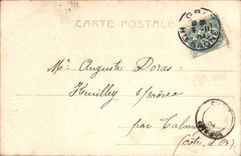 CARTE POSTALE
Mr Auguste Doras
Heuilley s/Saône
par Talmay
(Côte d'Or)